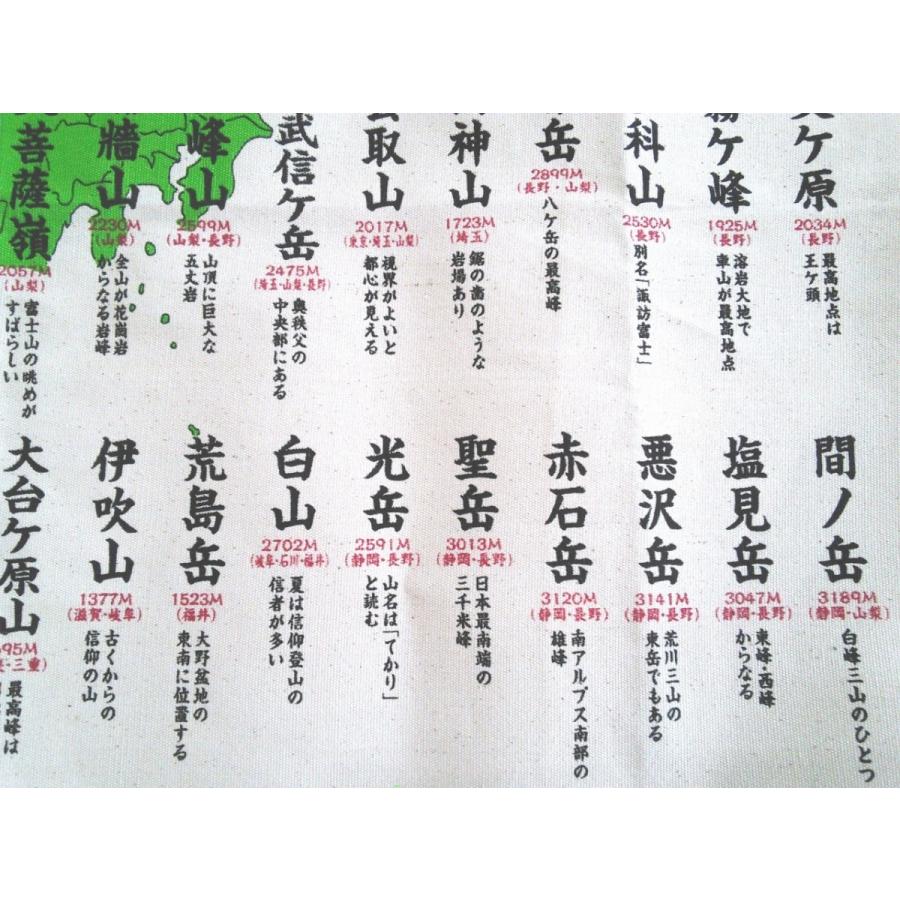 ヶ原
2034M
(長野)
最高地点は
王ケ頭
ケ峰
1925M
(長野)
溶岩大地で
車山が最高地点
科山
2530M
(長野)
別名「諏訪富士」
岳
2899M
(長野・山梨)
八ケ岳の最高峰
神山
1723M
(埼玉)
鋸の歯のような
岩場あり
取山
2017M
(東京・埼玉・山梨)
視界がよいと
都心が見える
武信ケ岳
2475M
(埼玉・山梨・長野)
奥秩父の
中央部にある
峰山
2599M
(山梨・長野)
山頂に巨大な
五丈岩
牆山
2230M
(山梨)
全山が花崗岩
からなる岩峰
菩薩嶺
2057M
(山梨)
富士山の眺めが
すばらしい
間ノ岳
3189M
(静岡・山梨)
白峰三山のひとつ
塩見岳
3047M
(静岡・長野)
東峰・西峰
からなる
悪沢岳
3141M
(静岡・長野)
荒川三山の
東岳でもある
赤石岳
3120M
(静岡・長野)
南アルプス南部の
雄峰
聖岳
3013M
(静岡・長野)
日本最南端の
三千米峰
光岳
2591M
(静岡・長野)
山名は「てかり」
と読む
白山
2702M
(岐阜・石川・福井)
夏は信仰登山の
信者が多い
荒島岳
1523M
(福井)
大野盆地の
東南に位置する
伊吹山
1377M
(滋賀・岐阜)
古くからの
信仰の山
大台ケ原山
95M
・三重)
最高峰は